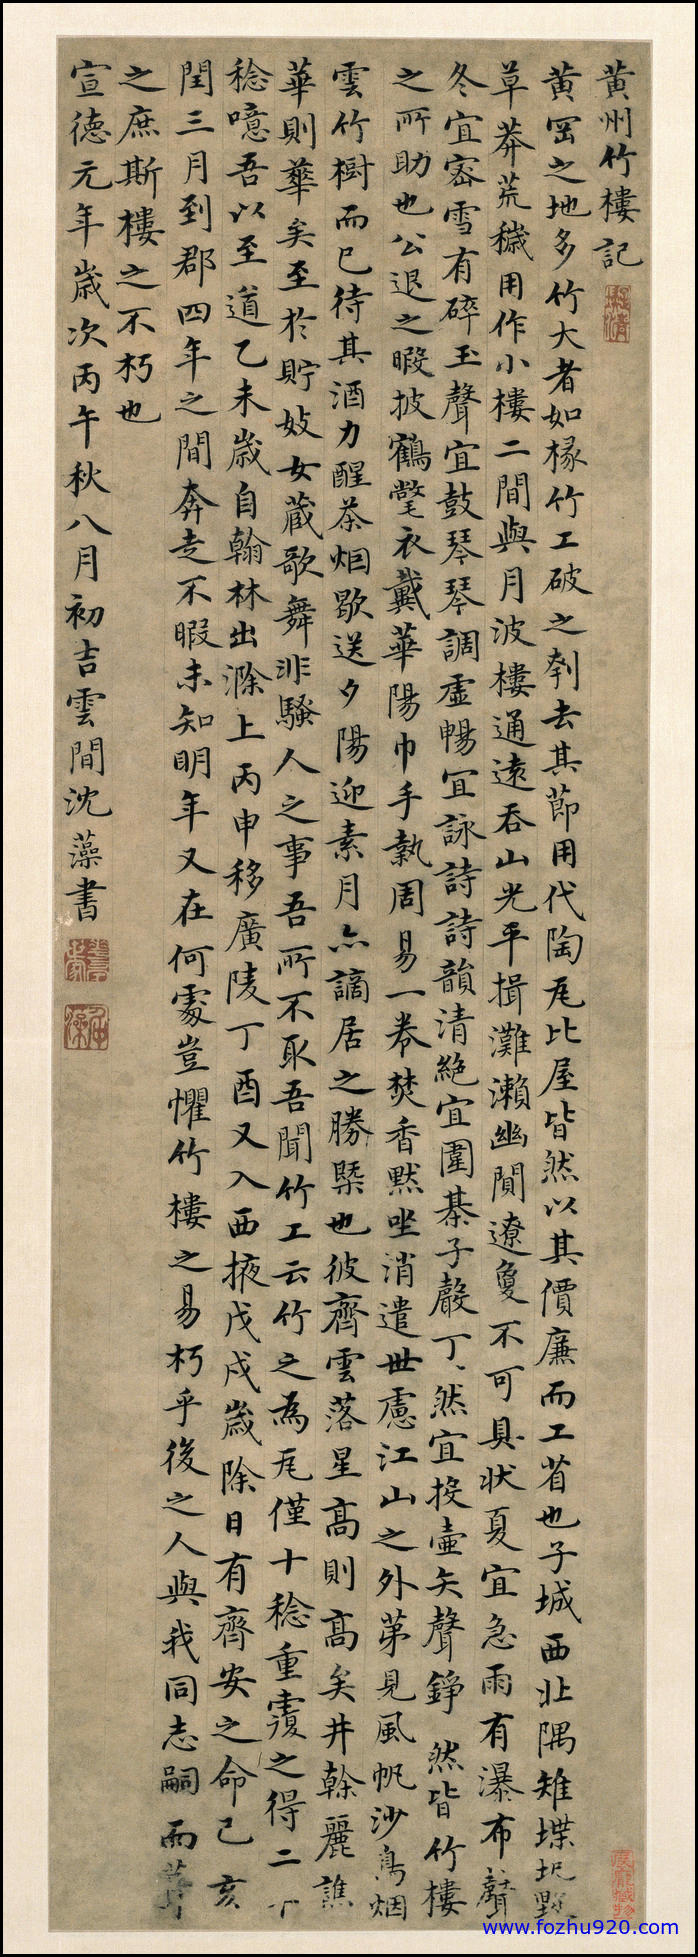 黄州竹樓記
黄岡之地多竹大者如椽竹工破之刳去其節用代陶瓦比屋皆然以其價廉而工省也子城西北隅雉堞圮毁
草莽荒穢用作小樓二間與月波樓通遠吞山光平挹灘瀨幽闃遼夐不可具状夏宜急雨有瀑布聲
冬宜密雪有碎玉聲宜鼓琴琴調虚暢宜詠詩詩韻清絶宜圍棊子聲丁丶然宜投壷矢聲錚然皆竹樓
之所助也公退之暇披鶴氅衣戴華陽巾手執周易一卷焚香默坐消遣世慮江山之外第見風帆沙鳥烟
雲竹樹而已待其酒力醒茶烟歇送夕陽迎素月亦謫居之勝槩也彼齊雲落星髙則髙矣井榦麗譙
華則華矣至於貯妓女蔵歌舞非騷人之事吾所不取吾聞竹工云竹之為瓦僅十稔重覆之得二十
稔噫吾以至道乙未歲自翰林出滁上丙申移廣陵丁酉又入西掖戊戌歲除日有齊安之命己亥
閏三月到郡四年之間奔走不暇未知明年又在何處豈懼竹樓之易朽乎後之人與我同志嗣而葺
之庶斯樓之不朽也
宣德元年歲次丙午秋八月初吉雲間沈藻書
www.fozhu920.com